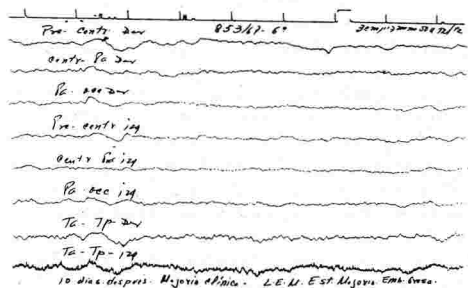 Pre-contr Der 853/67-6º
Contr-Pa Der
Pa-occ Der
Pre-contr izq
Contr Pa izq
Pa-occ izq
Ta-Tp-Der
Ta-Tp-izq
10 dias después. Mejoria clínica. L.E.M. Est. Mejoria. Emb.